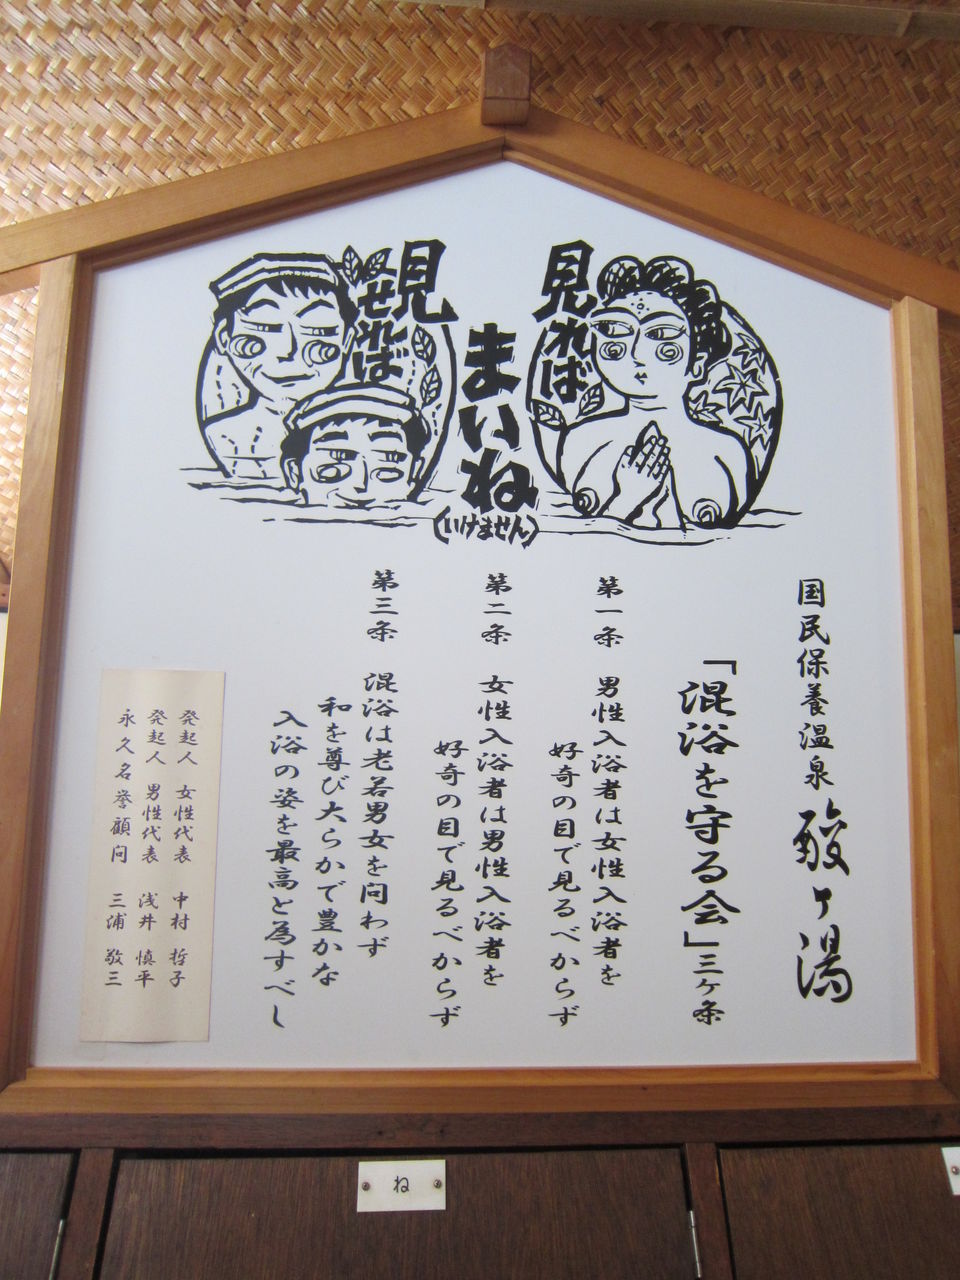 見れば
まいね
(いけません)
見せれば
国民保養温泉 酸ヶ湯
「混浴を守る会」三ヶ条
第一条 男性入浴者は女性入浴者を
好奇の目で見るべからず
第二条 女性入浴者は男性入浴者を
好奇の目で見るべからず
第三条 混浴は老若男女を問わず
和を尊び大らかで豊かな
入浴の姿を最高と為すべし
発起人 女性代表 中村 哲子
発起人 男性代表 浅井 慎平
永久名誉顧問 三浦 敬三
ね